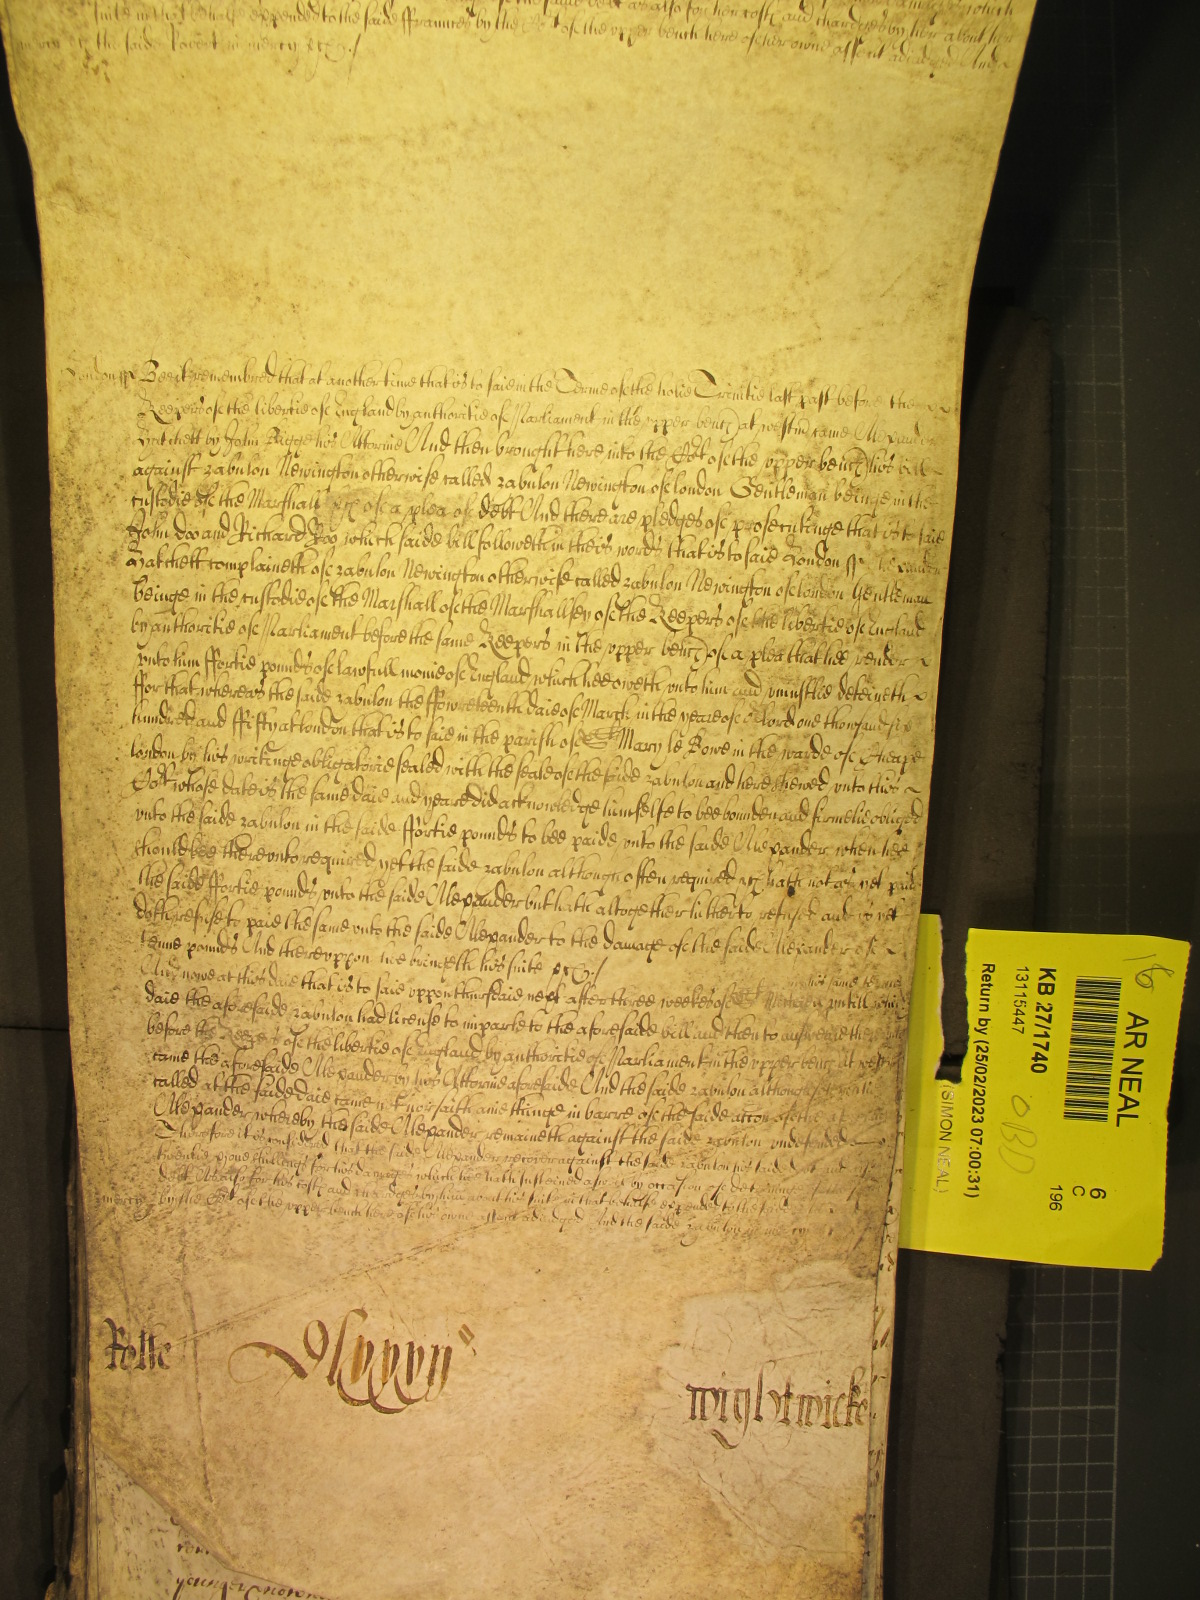 suite in that behalfe expended to the saide ffraunces by the Cort of the upper bench here of her owne assent adiudged And
the saide Robert in mercy &c /
London ss Bee it remembred that at another time that is to saie in the Terme of the holie Trinitie last past before the
Keepers of the libertie of England by authoritie of Parliament in the upper bench at westm came Alexander
Hatchett by John Rigge his Attornie And then brought here into the Cort of the upper bench his bill
against zabulon Newington otherwise called zabulon Newington of london Gentleman beinge in the
custodie of the Marshall &c of a plea of debt And there are pledges of prosecutinge that is to saie
John Doo and Richard Roo which saide bill followeth in theis words that is to saie London ss Alexander
Hatchett complaineth of zabulon Newington otherwise called zabulon Newington of london Gentleman
beinge in the custodie of the Marshall of the Marshallsey of the Keepers of the libertie of England
by authoritie of Parliament before the same Keepers in the upper bench of a plea that hee render
unto him ffortie pounds of lawfull monie of England which hee oweth unto him and uniustlie deteineth
ffor that whereas the saide zabulon the ffowreteenth daie of March in the yeare of lord one thousand six
hundred and ffifty at london that is to saie in the parish of St Mary le Bowe in the warde of Cheape
london by his writinge obligatorie sealed with the seale of the saide zabulon and here shewed unto this
Cort whose date is the same daie and yeare did acknowledge himselfe to bee bounden and firmelie obliged
unto the saide zabulon in the saide ffortie pounds to bee paide unto the saide Alexander when hee
should bee thereunto required yet the saide zabulon although often required &c hath not as yet paid
the saide ffortie pounds unto the saide Alexander but hath altogether hitherto refused and as yet
doth refuse to paie the same unto the saide Alexander to the damage of the saide Alexander of
tenne pounds And thereuppon hee bringeth his suite &c /
And nowe at this daie that is to saie uppon thursdaie next after three weekes of St Michaell untill which
daie the aforesaide zabulon had license to imparle to the aforesaide bill and then to answeare
before the Keepers of the libertie of England by authoritie of Parliament in the upper bench at westm
came the aforesaide Alexander by his Attornie aforesaide And the saide zabulon although solemnlie
called at the saide daie came not nor saith anie thinge in barre of the saide accon of the
Alexander whereby the saide Alexander remaineth against the saide zabulon undefended
Therefore it is considered that the saide Alexander recover against the saide zabulon his saide debt and
twentie shillings for his damages which hee hath susteined aswell by occasion of deteininge
debt As also for his costs and charges by him about his suite in that behalfe expended to the saide
mercy by the Cort of the upper bench here of his owne assent adiudged And the saide zabulon in mercy
Rolle
wightwicke
younger
AR NEAL
KB 27/1740
13115447
Return by (25/02/2023 07:00:31)
(SIMON NEAL)
6
C
196